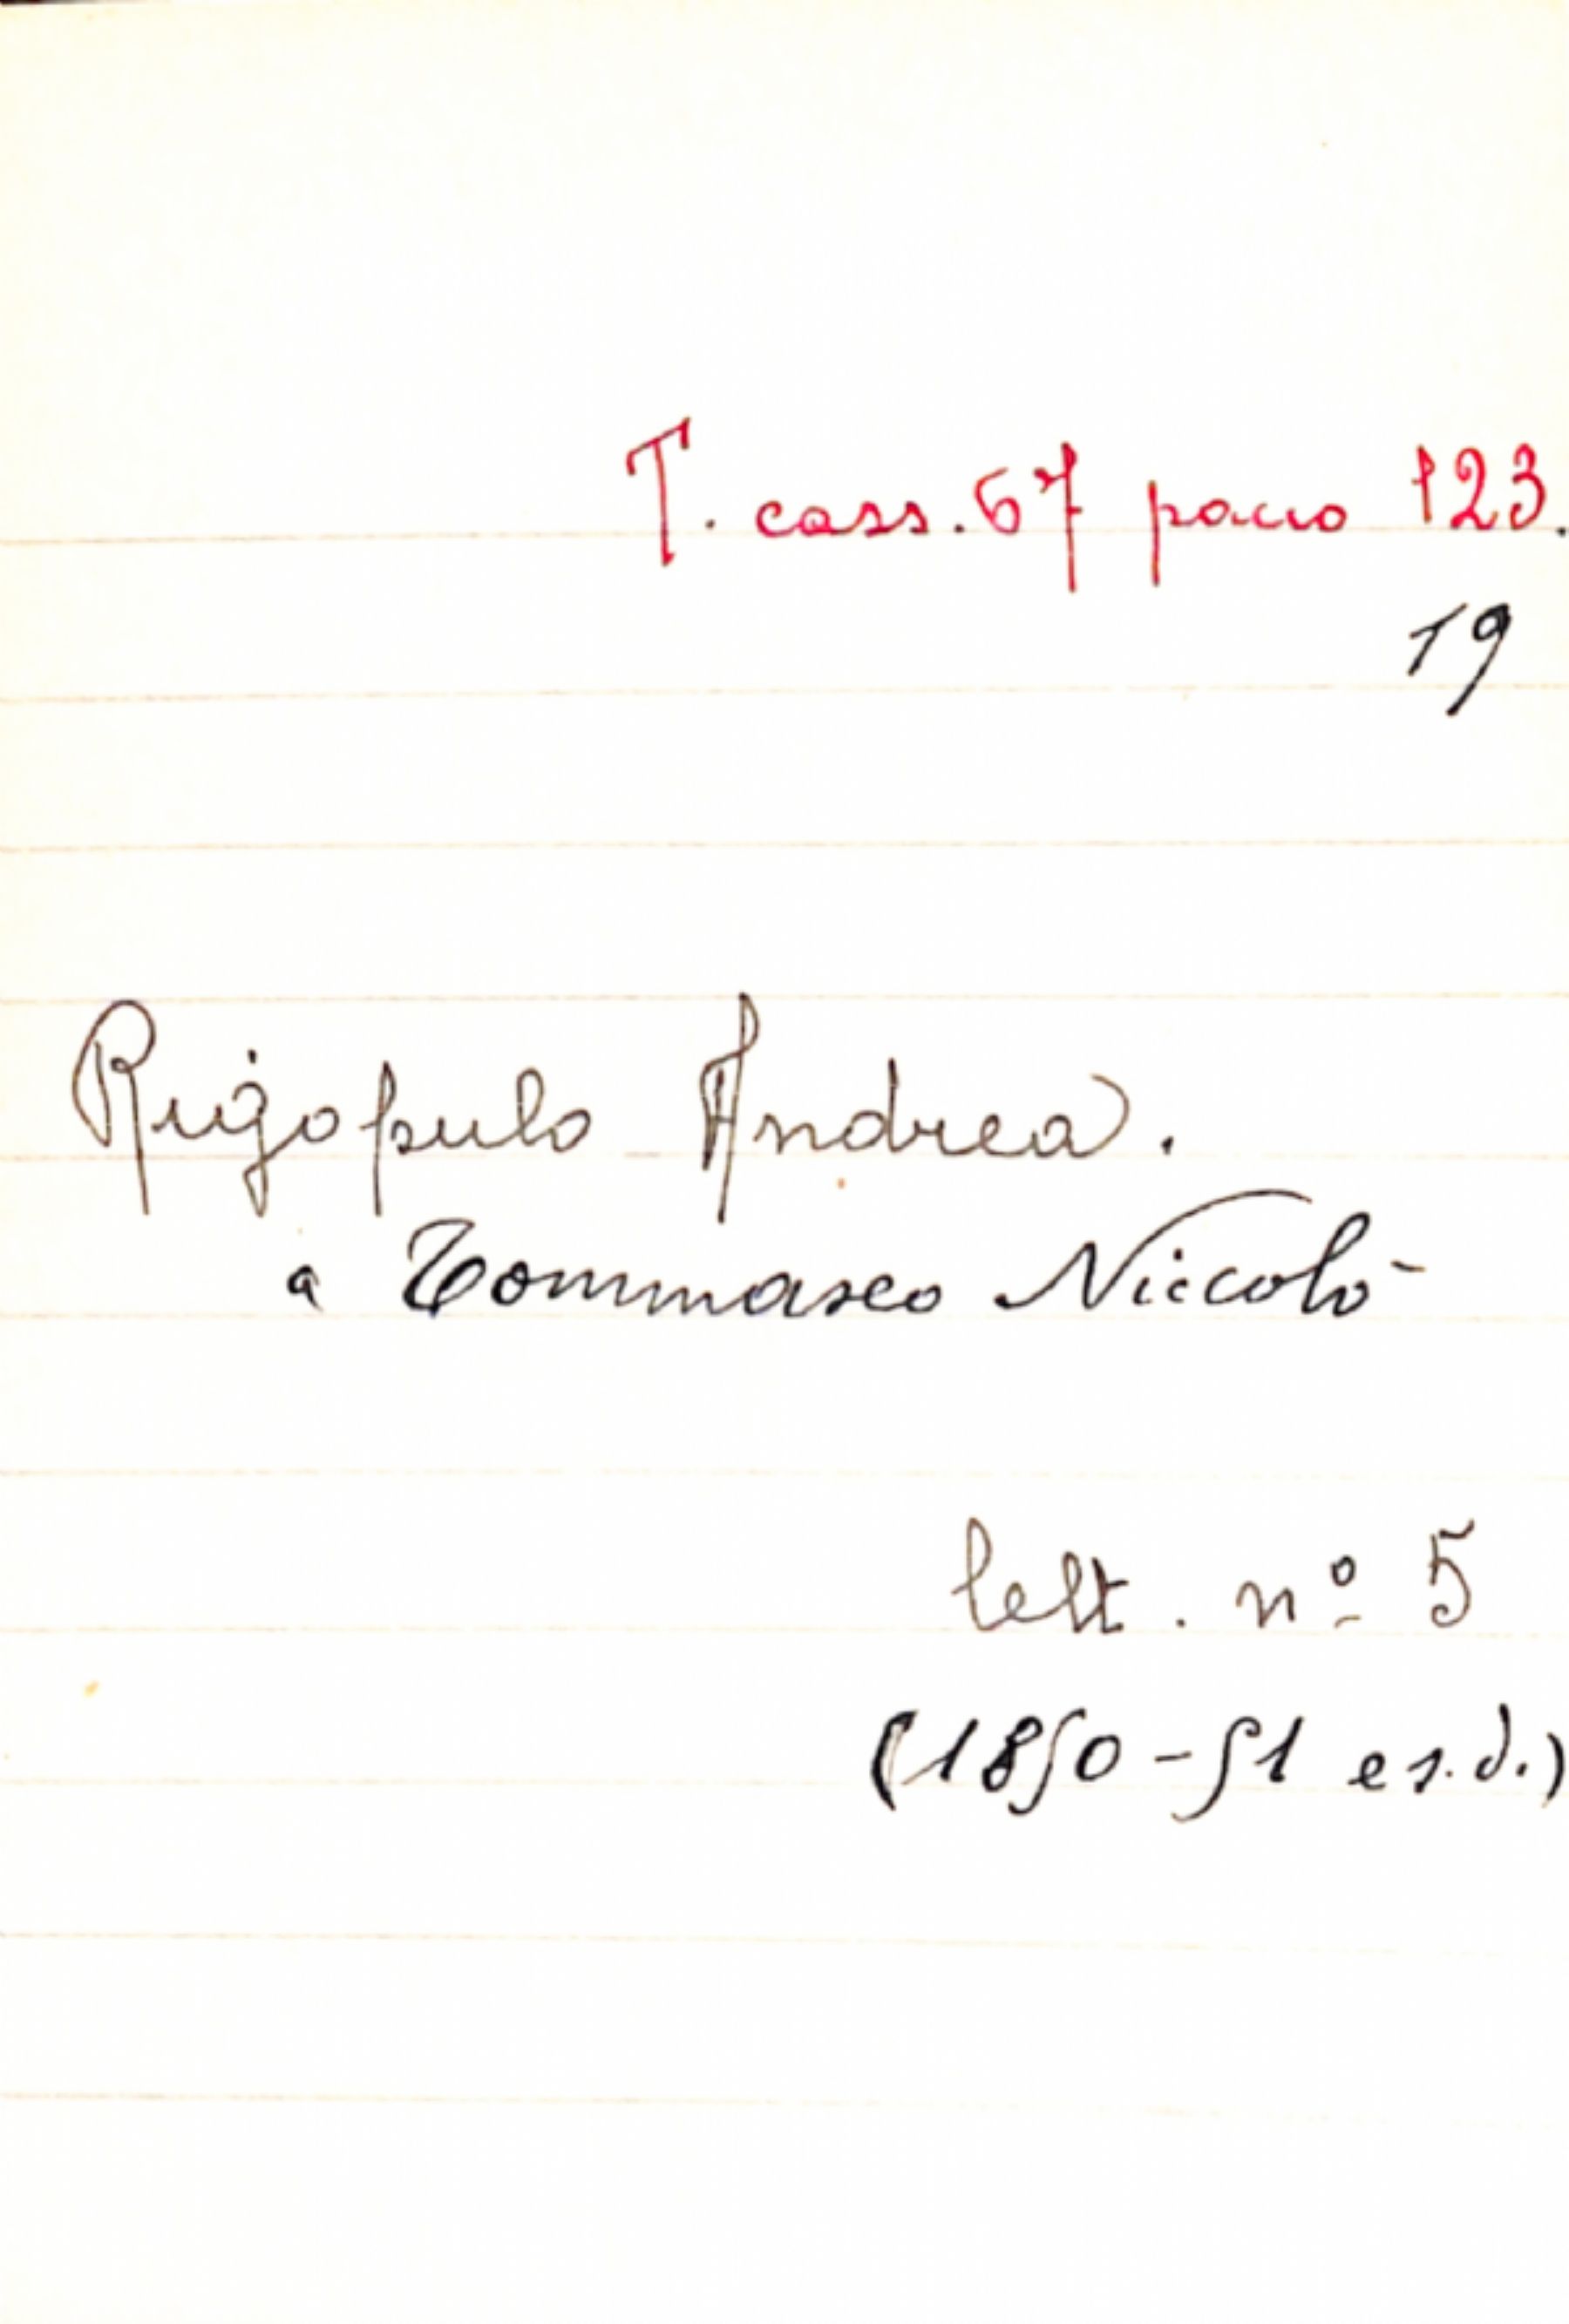 T. cass. 67 pacco 123.
19
Rigopulo Andrea.
a Tommaseo Niccolò
lett. nº 5
(1850-51 e s.d.)